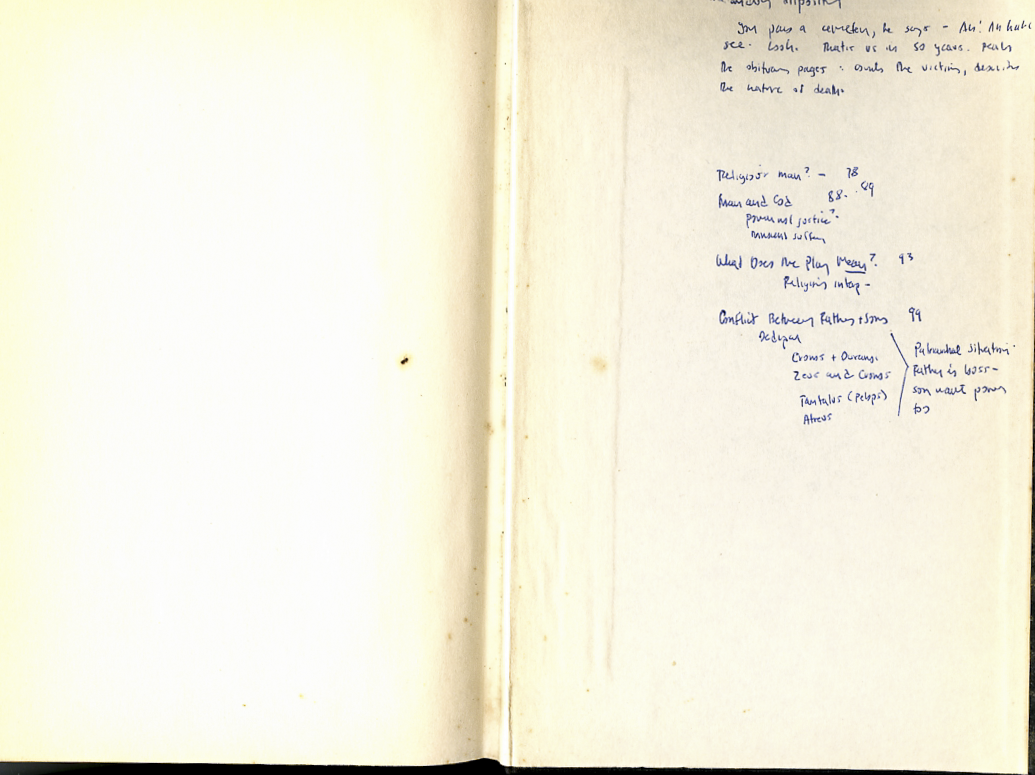 You pass a cemetery, he says - Ah!
see. Look. That's us in 50 years. Reads
the obituary pages: counts the victims, describes
the nature of death.
Religious man? - 78
Man and God 88-89
power not justice?
innocent suffering
What Does the Play Mean? 93
Religious interp -
Conflict Between Fathers + Sons 99
Oedipus
Cronos + Ouranos
Zeus and Cronos
Tantalus (Pelops)
Atreus
Patriarchal situation
Father is boss -
son wants power
too